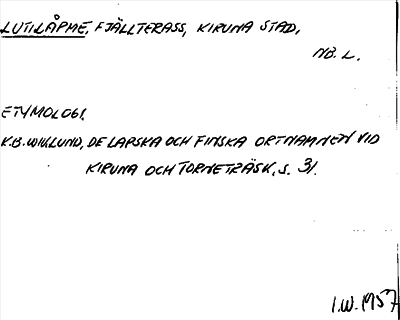 LUTILÅPME, FJÄLLTERASS, KIRUNA STAD,
NB. L.
ETYMOLOGI.
K.B. WIKLUND, DE LAPSKA OCH FINSKA ORTNAMNEN VID
KIRUNA OCH TORNETRÄSK, S. 31.
I.W. 1957